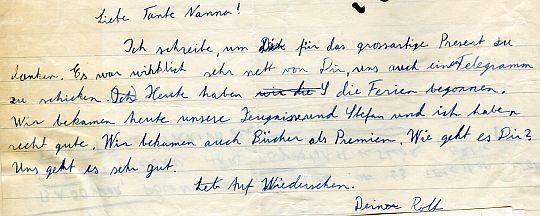 Liebe Tante Nanna!
Ich schreibe, um Dir für das grossartige Present zu
danken. Es war wirklich sehr nett von Dir, uns auch ein Telegramm
zu schicken. Heute haben wir die Ferien begonnen.
Wir bekamen heute unsere Zeugnisse und Stefan und ich haben
recht gute. Wir bekamen auch Bücher als Premien. Wie geht es Dir?
Uns geht es sehr gut.
Auf Wiedersehen.
Deine Rolf